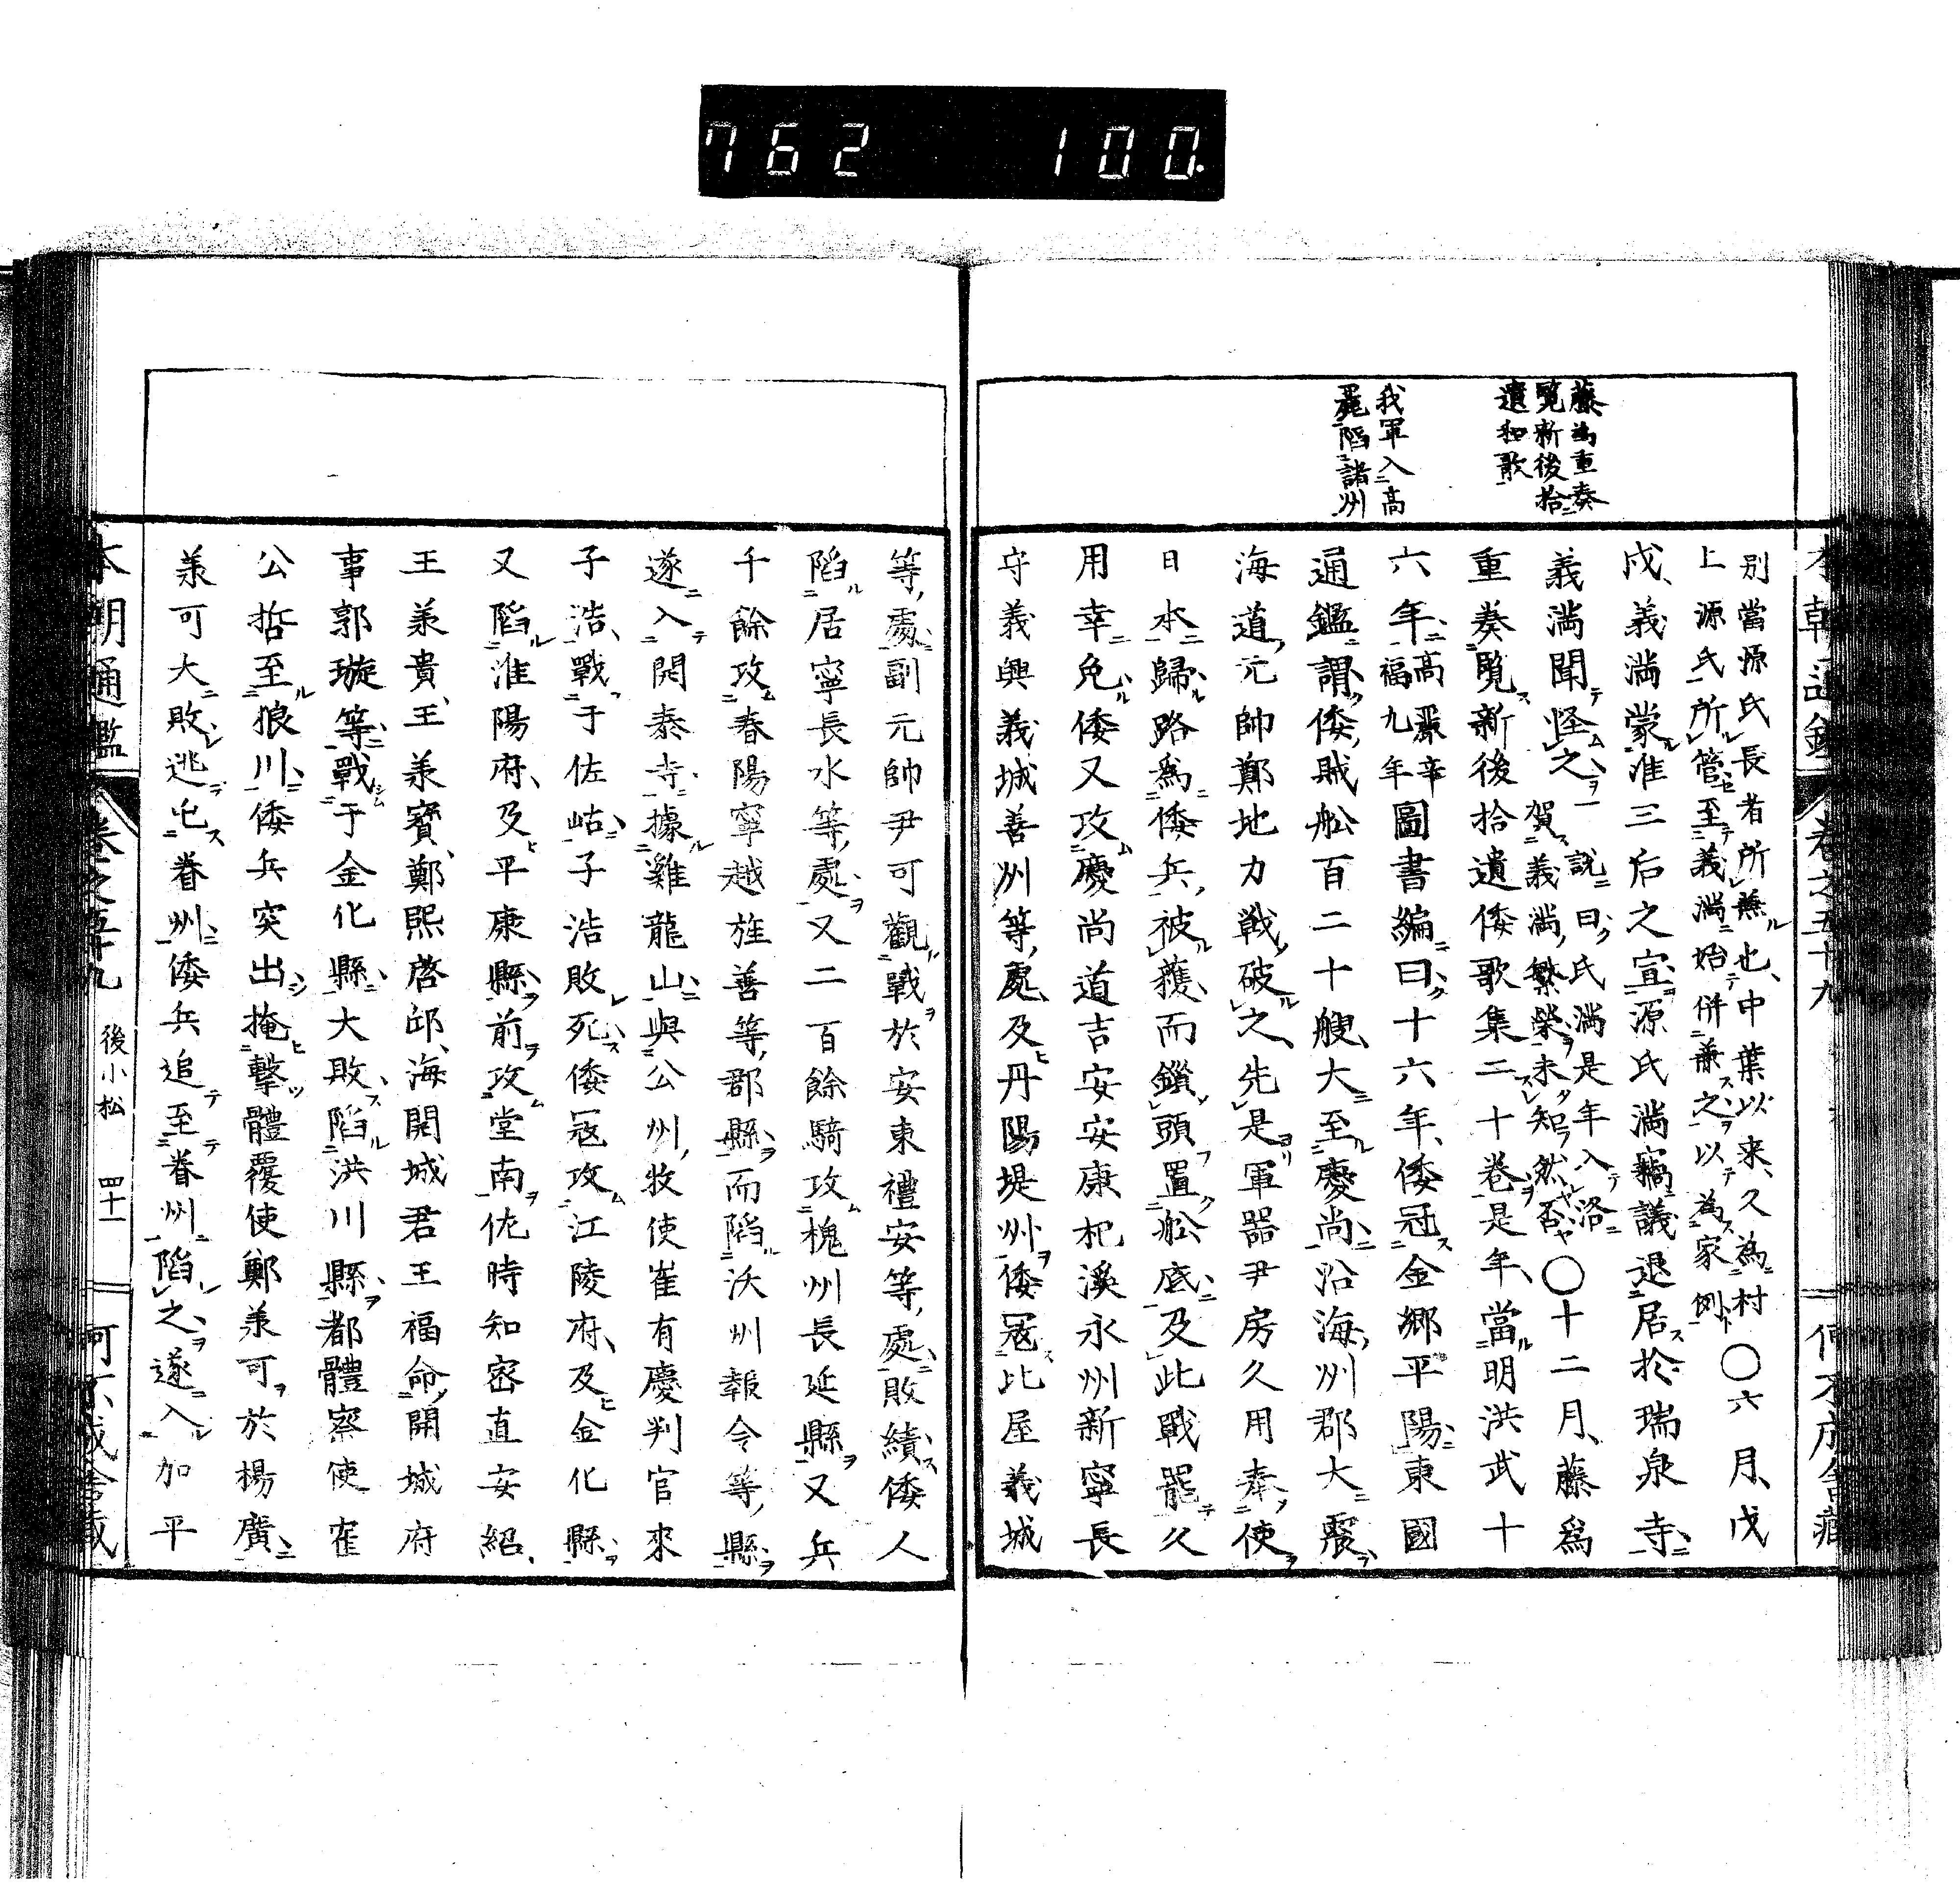 762 100
藤為重奏
覧新後拾
遺和歌
我軍入高
麗陷諸州
別當源氏長者所兼也、中葉以来、久為村
上源氏所管至義満始併兼之以為家例
○六月、戊
戌、義満蒙准三后之宣源氏満竊議退居於瑞泉寺
義満聞怪之
一説曰氏満是年入洛
賀義満繁榮未知然否
○十二月、藤為
重奏覧新後拾遺倭歌集二十卷是年、當明洪武十
六年、
高麗辛
福九年
圖書編曰十六年、倭寇金郷平陽東國
通鑑謂倭賊舩百二十艘、大至慶尚沿海州郡大震
海道元帥鄭地力戦破之、先是軍器尹房久用奉使
日本歸路為倭兵被獲、而鎖頭置舩底及此戰罷久
用幸免倭又攻慶尚道吉安安康杞溪永州新寧長
守義興義城善州等處、及丹陽堤州倭冦比屋義城
等處副元帥尹可觀戰於安東禮安等處敗績倭人
陷居寧長水等處又二百餘騎攻槐州長延縣又兵
千餘攻春陽寧越旌善等郡縣而陷沃州報令等縣
遂入開泰寺據雞龍山與公州牧使崔有慶判官宋
子浩、戰于佐岾子浩敗死倭冦攻江陵府、及金化縣
又陷淮陽府、及平康縣前攻堂南佐時知密直安紹、
王羕貴、王羕寶、鄭煕啓邱、海開城君王福命開城府
事郭璇等戰于金化縣大敗陷洪川縣都體察使崔
公哲至狼川倭兵突出掩擊體覆使鄭羕可於楊廣
羕可大敗逃屯眷州倭兵追至眷州陷之遂入加平
本朝通鑑 卷之五十九 後小松 四十一